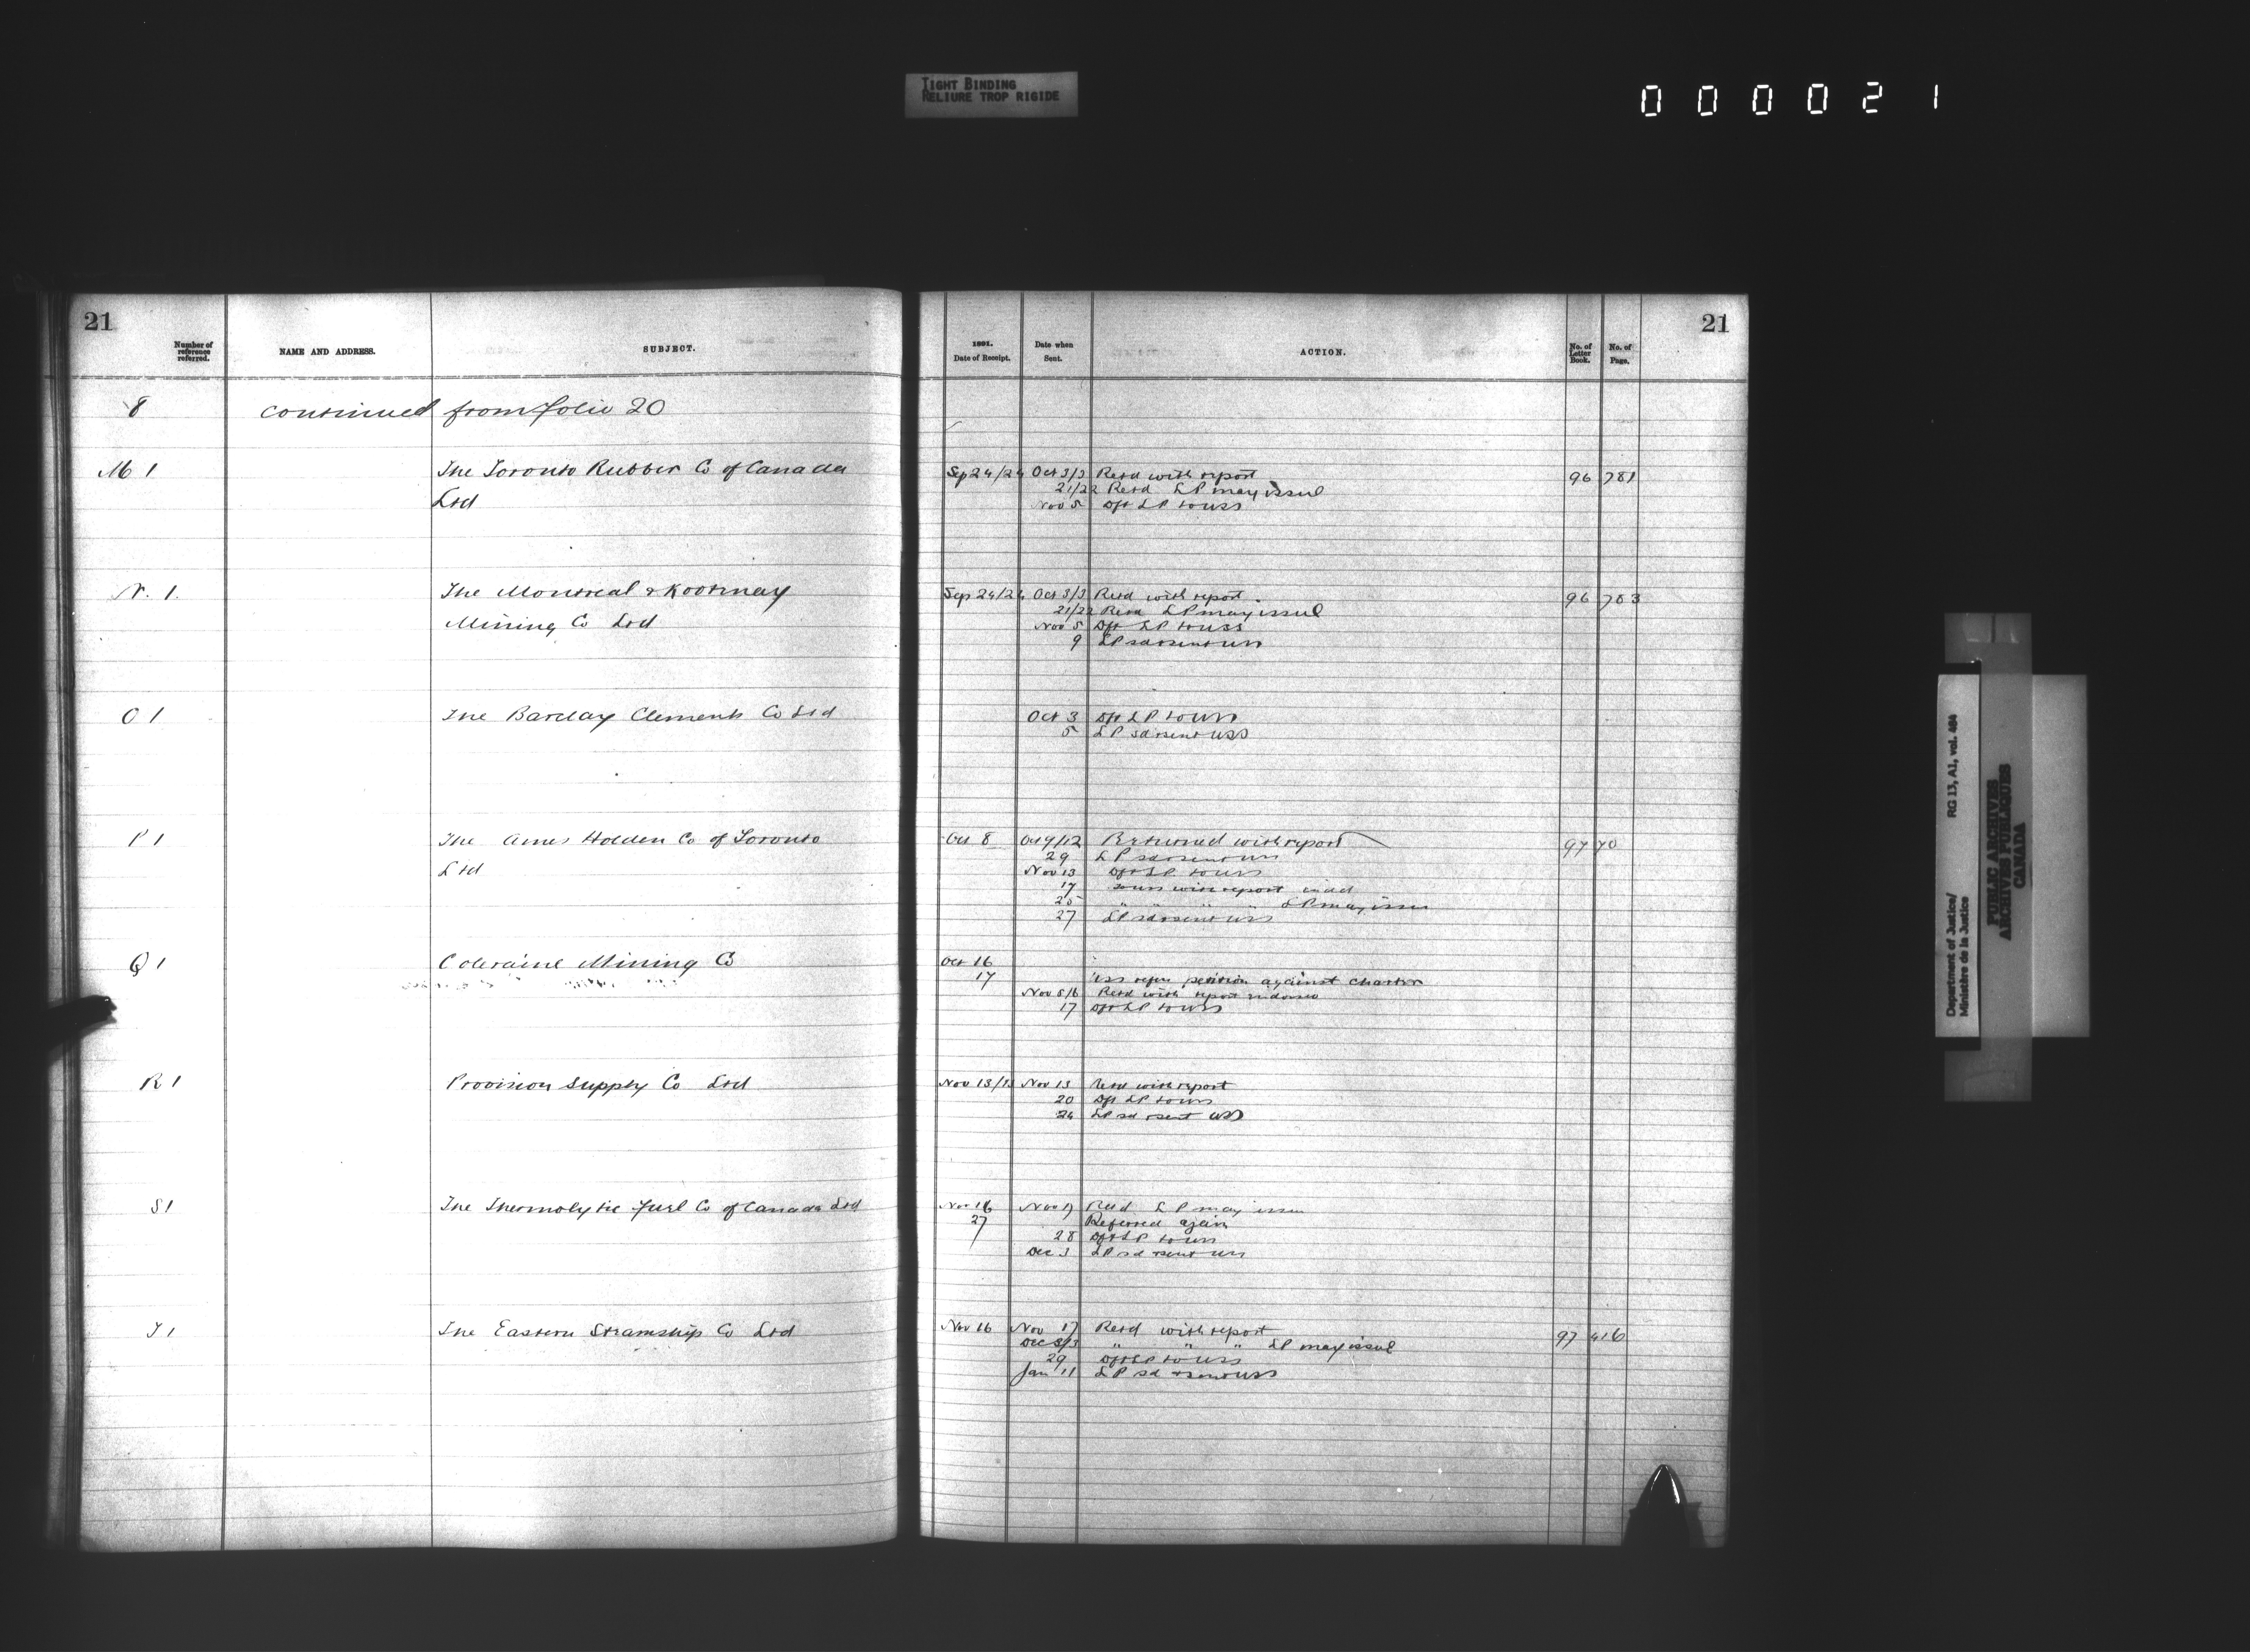 TIGHT BINDING
RELIURE TROP RIGIDE
000021
21
Number of reference referred.
NAME AND ADDRESS.
SUBJECT.
8 continued from folio 20
M 1 The Toronto Rubber Co of Canada
Ltd
N. 1. The Montreal & Kootenay
Mining Co Ltd
O 1 The Barclay Clements Co Ltd
P 1 The Ames Holden Co of Toronto
Ltd
Q 1 Coleraine Mining Co
R 1 Provision Supply Co Ltd
S 1 The Thermolytic Fuel Co of Canada Ltd
T 1 The Eastern Steamship Co Ltd
21
1891.
Date of Receipt.
Date when Sent.
ACTION.
No. of Letter Book.
No. of Page.
Sep 24/24 Oct 3/3 Retd with report 96 781
21/22 Retd LP may issue
Nov 5 Dft LP to USS
Sep 24/24 Oct 3/3 Retd with report. 96 783
21/22 Retd LP may issue
Nov 5 Dft LP to USS
9 LP sd & sent USS
Oct 3 Dft LP to USS
5 LP sd & sent USS
Oct 8 Oct 9/12 Returned with report 97 70
29 LP sd & sent USS
Nov 13 Dft LP to USS
17 to USS with report
25 " " " " LP may issue
27 LP sd & sent USS
Oct 16
17 USS refers petition against charter
Nov 5/6 Retd with report
17 Dft LP to USS
Nov 13/13 Nov 13 Retd with report
20 Dft LP to USS
24 LP sd & sent USS
Nov 16 Nov 17 Retd LP may issue
27 Referred again
28 Dft LP to USS
Dec 3 LP sd & sent USS
Nov 16 Nov 17 Retd with report 97 416
Dec 3/3 " " " LP may issue
29 Dft LP to USS
Jan 11 LP sd & sent USS
Department of Justice/ RG 13, A1, vol. 484
Ministère de la Justice
PUBLIC ARCHIVES
ARCHIVES PUBLIQUES
CANADA